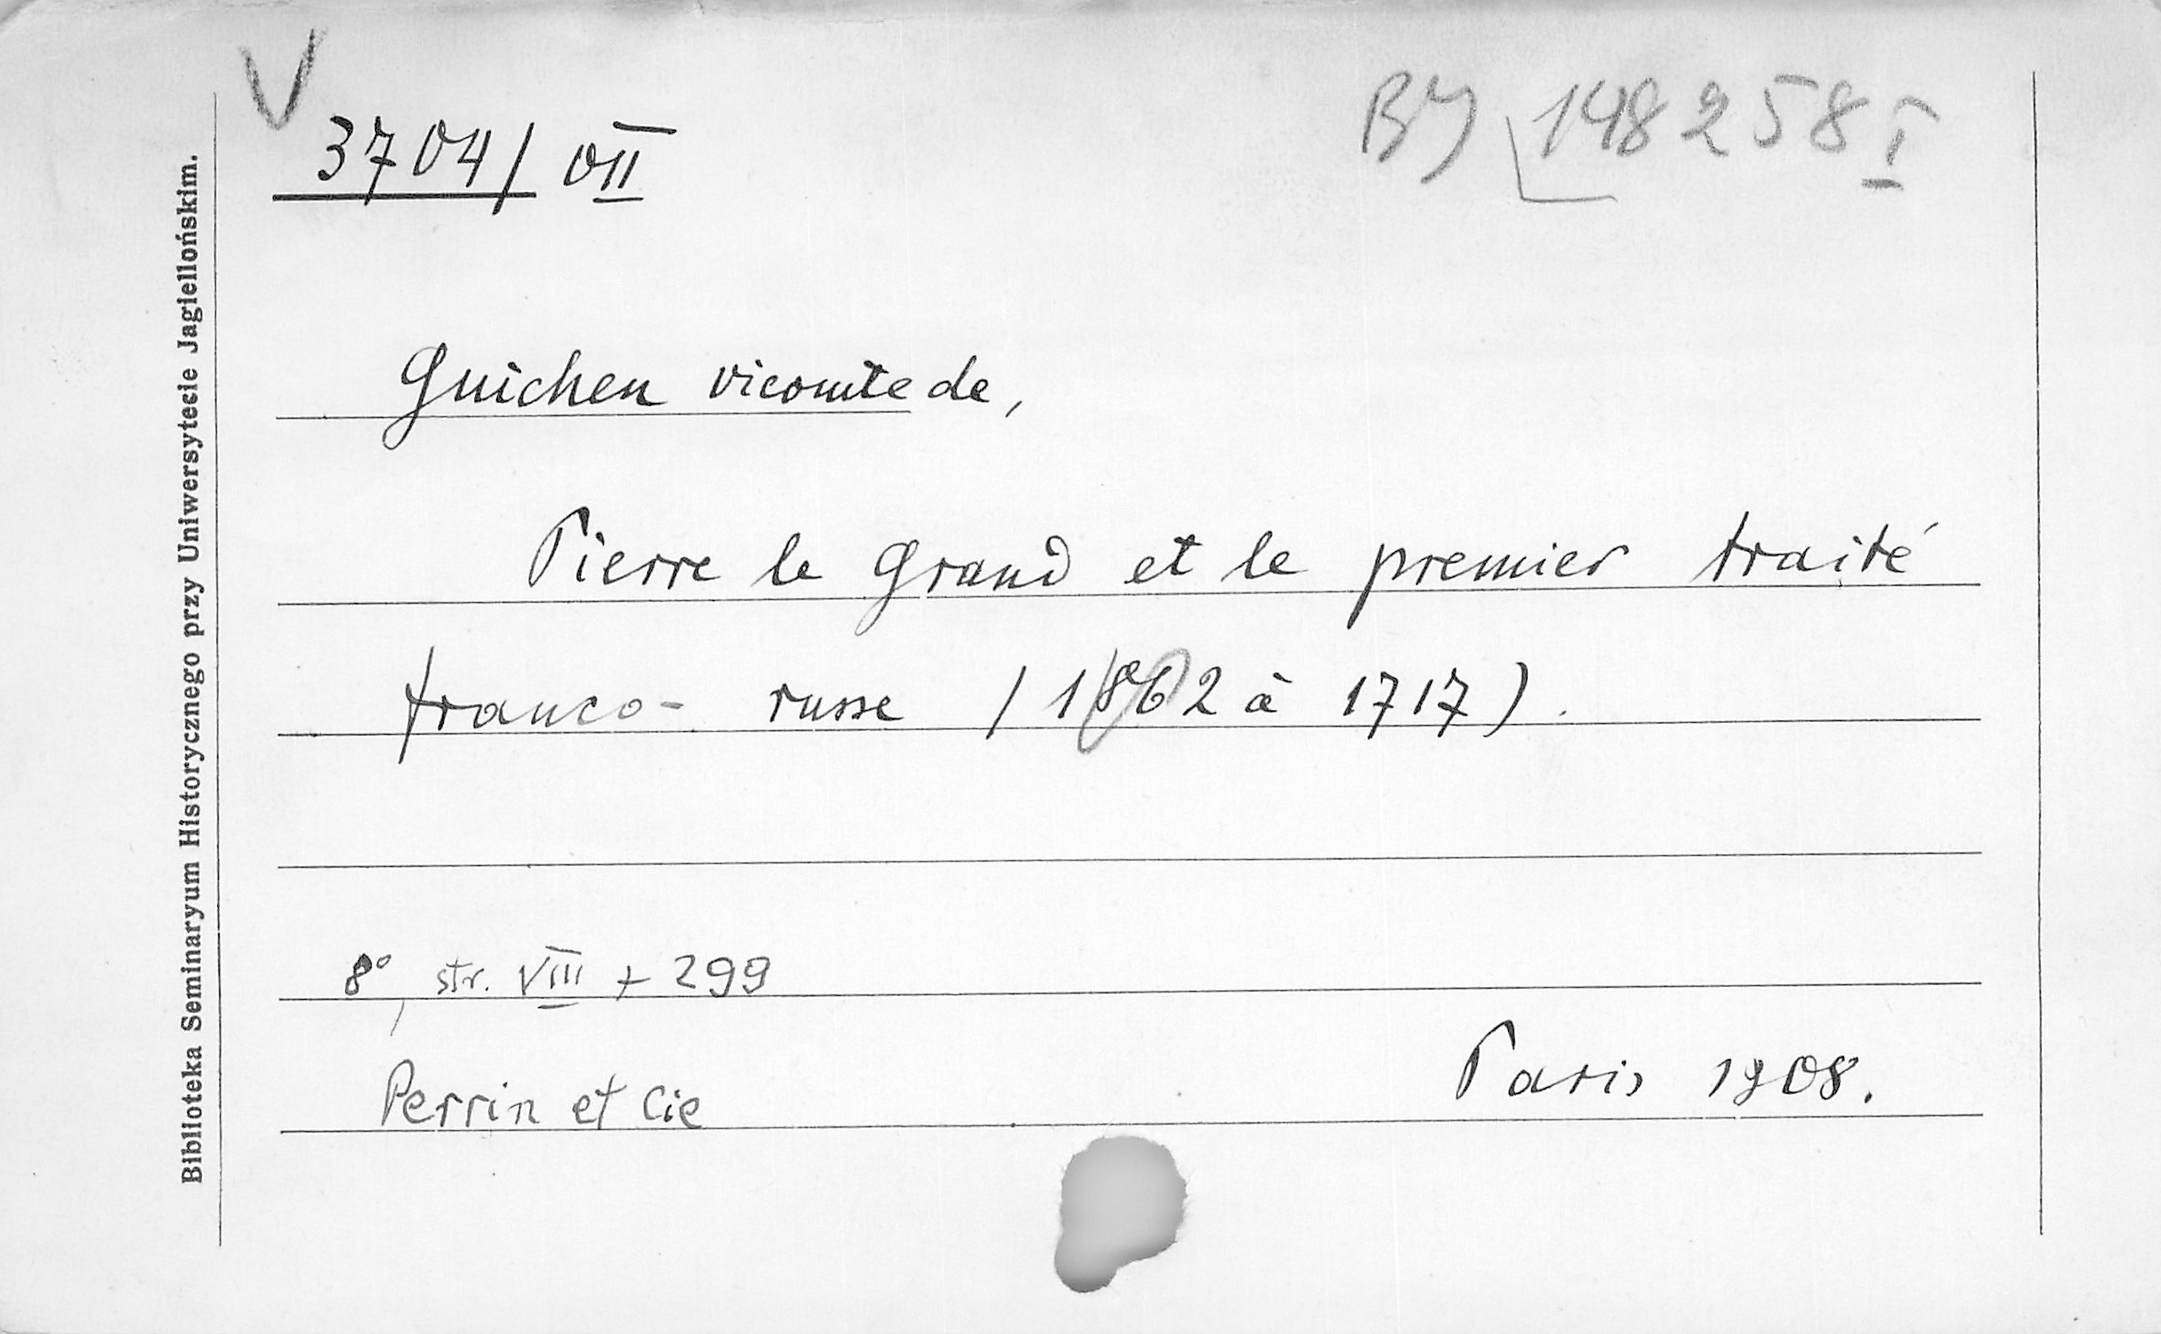 V
3704/VII
BJ 148258 I
Guichen vicomte de,
Pierre le Grand et le premier traité
franco-russe (1862 à 1717).
8°, str. VIII + 299
Perrin et Cie
Paris 1908.
Biblioteka Seminaryum Historycznego przy Uniwersytecie Jagiellońskim.